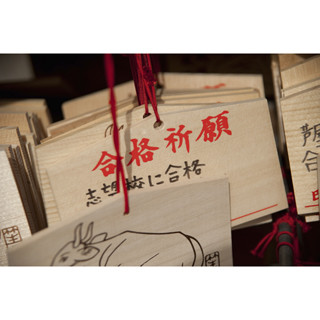 合格祈願
志望校に合格
合